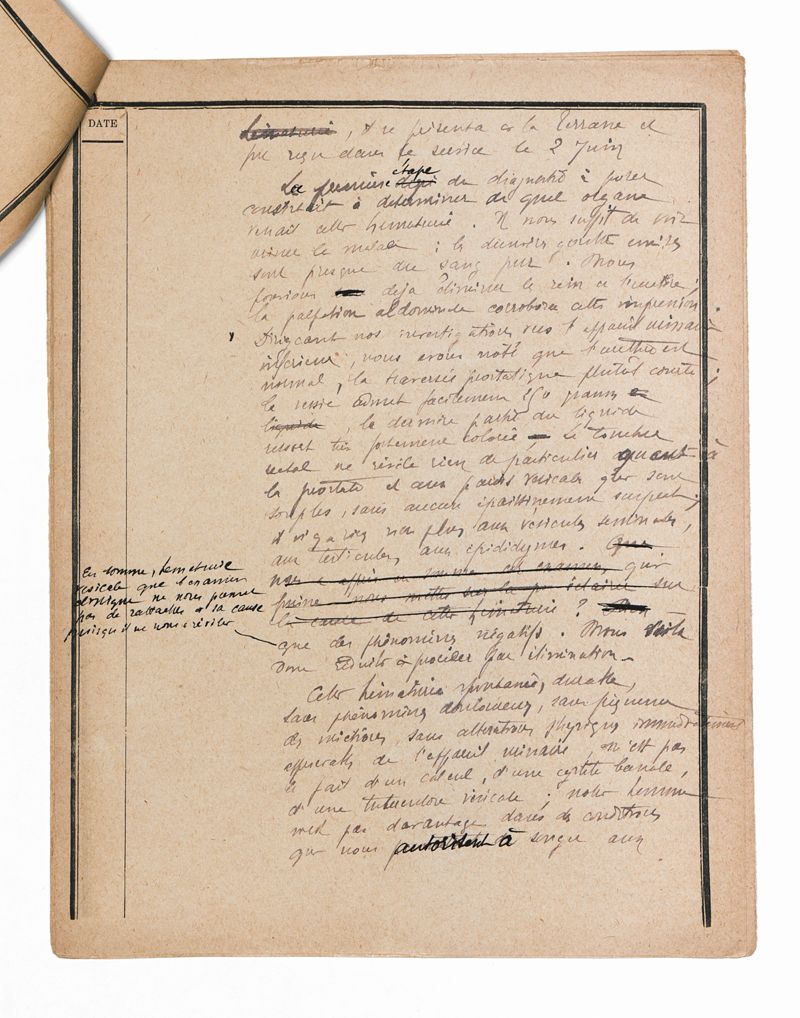 DATE
hématurie, il se présenta à la Terrasse et
fut reçu dans le service le 2 Juin
étape
La première du diagnostic à poser
consistait à déterminer de quel organe
venait cette hématurie. Il nous suffit de voir
uriner le malade : les dernières gouttes émises
sont presque du sang pur. Nous
pouvions déjà éliminer le rein et l'uretère,
la palpation abdominale corrobora cette impression.
Dirigeant nos investigations vers l'appareil urinaire
inférieur, nous avons noté que l'urèthre est
normal, la traversée prostatique plutôt courte ;
la vessie admet facilement 250 grammes
liquide, la dernière partie du liquide
ressort très fortement colorée - Le toucher
rectal ne révèle rien de particulier quant à
la prostate et aux parois vésicales qui sont
souples, sans aucun épaississement suspect ;
il n'y a rien non plus aux vésicules séminales,
aux testicules, aux épididymes. Que
nous a appris en somme cet examen, qui
puisse nous mettre sur la éclairer sur
la cause de cette hématurie ?
En somme, hématurie
vésicale que l'examen
clinique ne nous permet
pas de rattacher à sa cause
puisqu'il ne nous a révélé
que des phénomènes négatifs. Nous voilà
donc réduits à procéder par élimination -
Cette hématurie spontanée, durable,
sans phénomènes douloureux, sans fréquence
des mictions, sans altérations physiques immédiatement
de l'appareil urinaire, n'est pas
le fait d'un calcul, d'une cystite banale,
d'une tuberculose vésicale ; notre homme
n'est pas davantage dans des conditions
qui nous autorisent à songer aux